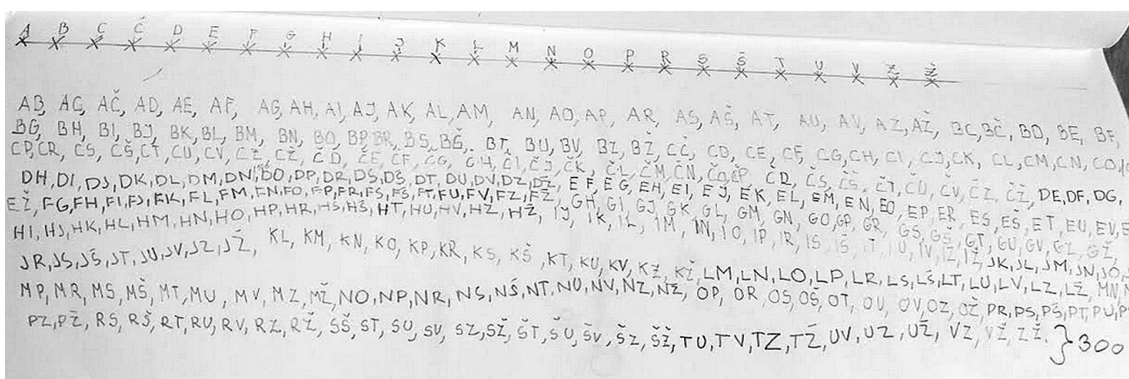 A B C Č D E F G H I J K L M N O P R S Š T U V Z Ž
AB, AC, AČ, AD, AE, AF, AG, AH, AI, AJ, AK, AL, AM, AN, AO, AP, AR, AS, AŠ, AT, AU, AV, AZ, AŽ, BC, BČ, BD, BE, BF,
BG, BH, BI, BJ, BK, BL, BM, BN, BO, BP, BR, BS, BŠ, BT, BU, BV, BZ, BŽ, CČ, CD, CE, CF, CG, CH, CI, CJ, CK, CL, CM, CN, CO,
CP, CR, CS, CŠ, CT, CU, CV, CZ, CŽ, ČD, ČE, ČF, ČG, ČH, ČI, ČJ, ČK, ČL, ČM, ČN, ČO, ČP, ČR, ČS, ČŠ, ČT, ČU, ČV, ČZ, ČŽ, DE, DF, DG,
DH, DI, DJ, DK, DL, DM, DN, DO, DP, DR, DS, DŠ, DT, DU, DV, DZ, DŽ, EF, EG, EH, EI, EJ, EK, EL, EM, EN, EO, EP, ER, ES, EŠ, ET, EU, EV,
EŽ, FG, FH, FI, FJ, FK, FL, FM, FN, FO, FP, FR, FS, FŠ, FT, FU, FV, FZ, FŽ, GH, GI, GJ, GK, GL, GM, GN, GO, GP, GR, GS, GŠ, GT, GU, GV, GZ, GŽ,
HI, HJ, HK, HL, HM, HN, HO, HP, HR, HS, HŠ, HT, HU, HV, HZ, HŽ, IJ, IK, IL, IM, IN, IO, IP, IR, IS, IŠ, IT, IU, IV, IZ, IŽ, JK, JL, JM, JN, JO,
JR, JS, JŠ, JT, JU, JV, JZ, JŽ, KL, KM, KN, KO, KP, KR, KS, KŠ, KT, KU, KV, KZ, KŽ, LM, LN, LO, LP, LR, LS, LŠ, LT, LU, LV, LZ, LŽ, MN,
MP, MR, MS, MŠ, MT, MU, MV, MZ, MŽ, NO, NP, NR, NS, NŠ, NT, NU, NV, NZ, NŽ, OP, OR, OS, OŠ, OT, OU, OV, OZ, OŽ, PR, PS, PŠ, PT, PU,
PZ, PŽ, RS, RŠ, RT, RU, RV, RZ, RŽ, SŠ, ST, SU, SV, SZ, SŽ, ŠT, ŠU, ŠV, ŠZ, ŠŽ, TU, TV, TZ, TŽ, UV, UZ, UŽ, VZ, VŽ, ZŽ. } 300